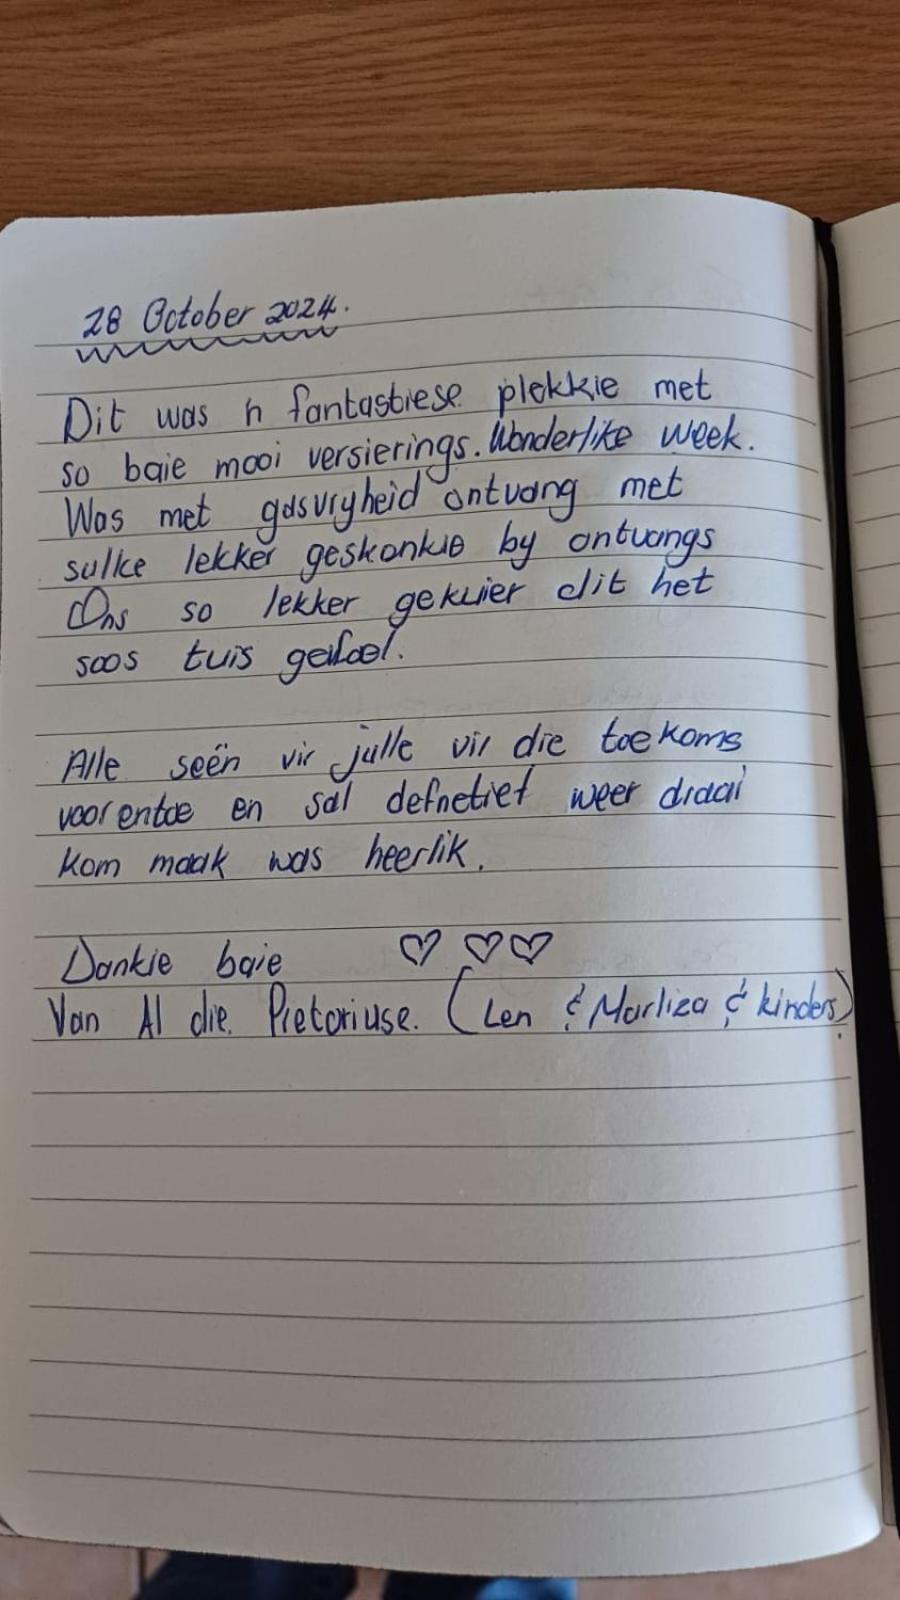 28 October 2024.
Dit was 'n fantastiese plekkie met
so baie mooi versierings. Wonderlike week.
Was met gasvryheid ontvang met
sulke lekker geskenkie by ontvangs
Ons so lekker gekuier dit het
soos tuis gevoel.
Alle seën vir julle vir die toekoms
voorentoe en sal defnetief weer draai
kom maak was heerlik.
Dankie baie ♡ ♡♡
Van Al die Pretoriuse. (Len & Marliza & kinders).